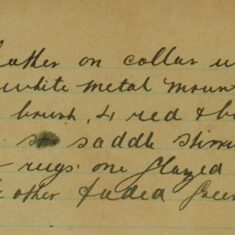 leather on collar
white metal mount
brush, 4 red & b
saddle stirru
rugs one glazed
other faded green